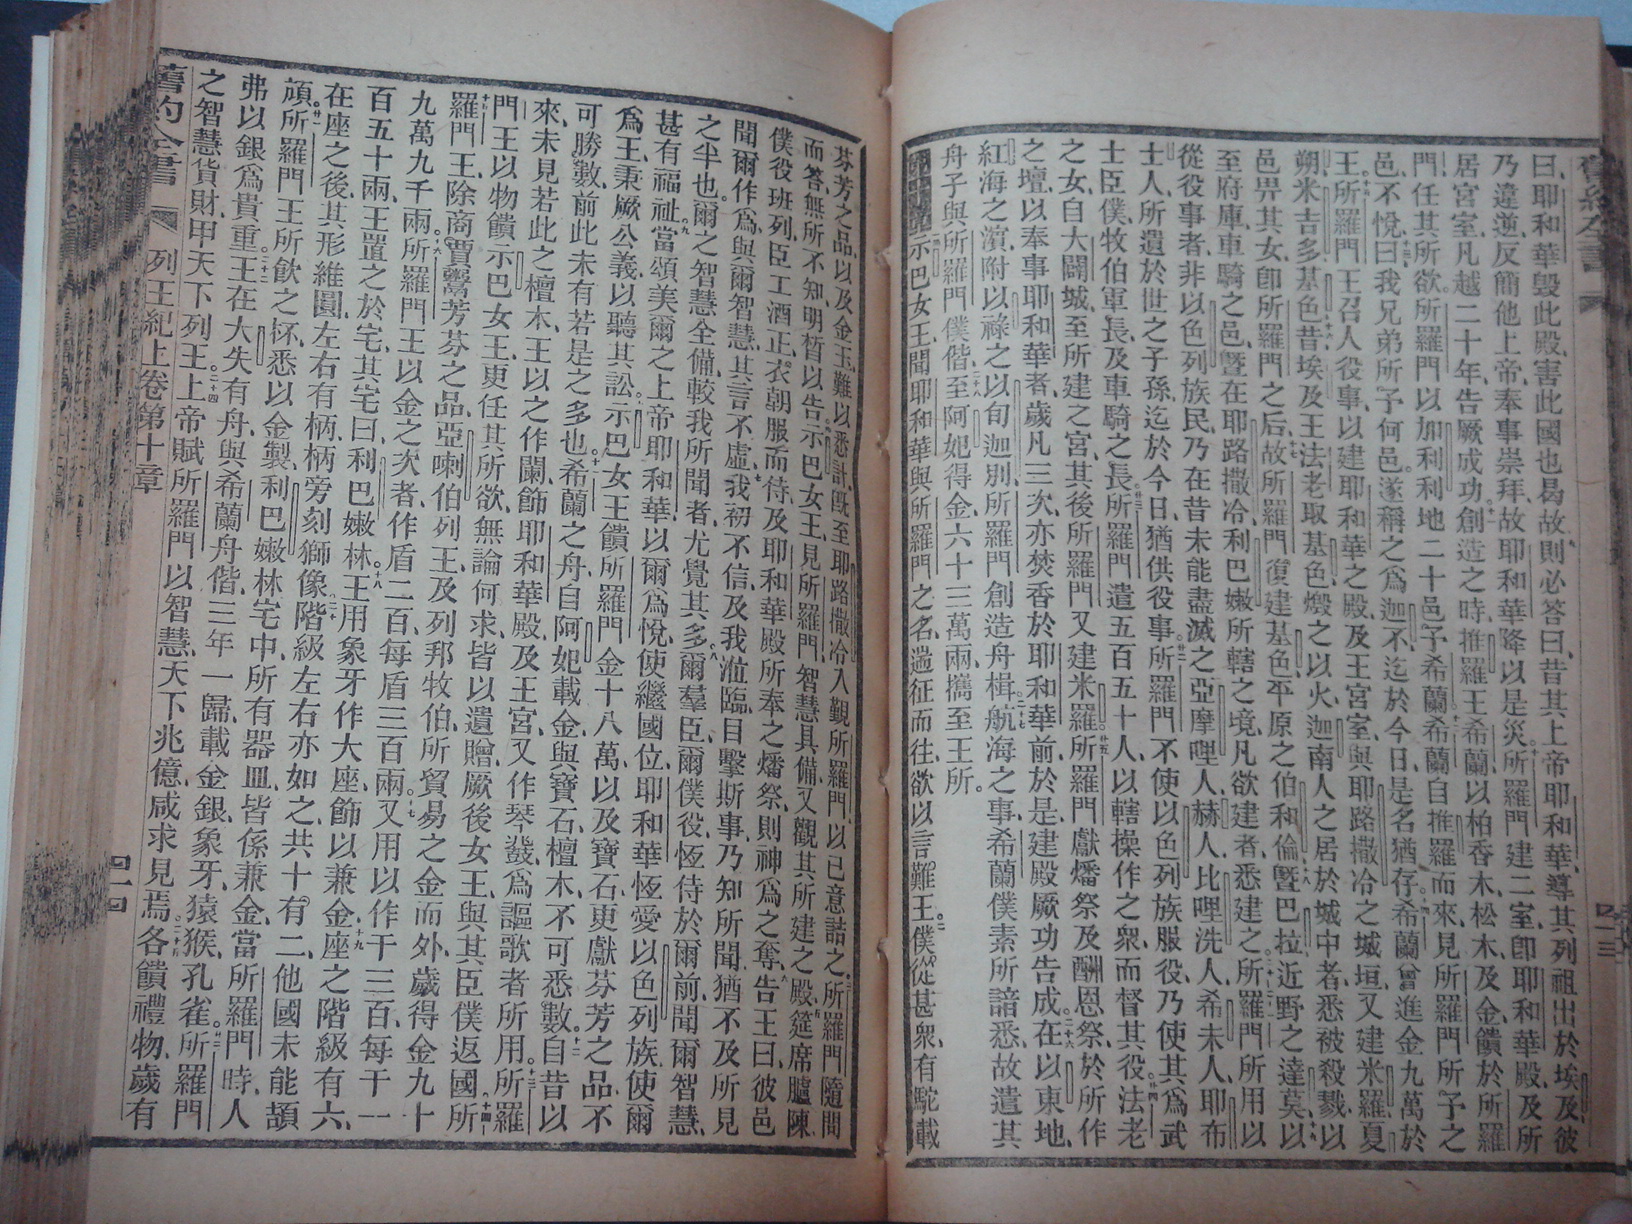 曰、耶和華毀此殿、害此國也曷故、則必答曰、昔其上帝耶和華、導其列祖出於埃及、彼
乃違逆、反簡他上帝、奉事崇拜、故耶和華降以是災、所羅門建二室、卽耶和華殿、及所
居宮室、凡越二十年、告厥成功、創造之時、推羅王希蘭以柏香木、松木、及金饋於所羅
門、任其所欲、所羅門以加利利地二十邑、予希蘭、希蘭自推羅而來、見所羅門所予之
邑、不悅、曰、我兄弟所予何邑、遂稱之爲迦不、迄於今日、是名猶存、希蘭曾進金九萬於
王、所羅門王召人役事、以建耶和華之殿、及王宮室、與耶路撒冷之城垣、又建米羅、夏
朔、米吉多、基色、昔埃及王法老取基色、燬之以火、迦南人之居於城中者、悉被殺戮、以
邑畀其女、卽所羅門之后、故所羅門復建基色、平原之伯和倫、曁巴拉、近野之達莫、以
至府庫車騎之邑、曁在耶路撒冷、利巴嫩、所轄之境、凡欲建者、悉建之、所羅門所用以
從役事者、非以色列族民、乃在昔未能盡滅之亞摩哩人、赫人、比哩洗人、希未人、耶布
士人、所遺於世之子孫、迄於今日、猶供役事、所羅門不使以色列族服役、乃使其爲武
士、臣僕、牧伯、軍長、及車騎之長、所羅門遣五百五十人、以轄操作之衆、而督其役、法老
之女、自大闢城、至所建之宮、其後所羅門又建米羅、所羅門獻燔祭、及酬恩祭、於所作
之壇、以奉事耶和華者、歲凡三次、亦焚香於耶和華前、於是建殿厥功告成、在以東地、
紅海之濱、附以祿之以旬迦別、所羅門創造舟楫、航海之事、希蘭僕素所諳悉、故遣其
舟子、與所羅門僕偕、至阿妃得金六十三萬兩、攜至王所。
示巴女王聞耶和華與所羅門之名、遄征而往、欲以言難王、僕從甚衆、有駝載
芬芳之品、以及金玉、難以悉計、旣至耶路撒冷、入覲所羅門、以己意詰之、所羅門隨問
而答、無所不知、明皙以吿、示巴女王見所羅門智慧具備、又觀其所建之殿、筵席臚陳、
僕役班列、臣工酒正、衣朝服而侍、及耶和華殿所奉之燔祭、則神爲之奪、告王曰、彼邑
聞爾作爲、與爾智慧、其言不虛、我初不信、及我涖臨、目擊斯事、乃知所聞、猶不及所見
之半也、爾之智慧全備、較我所聞者、尤覺其多、爾羣臣、爾僕役、恆侍於爾前、聞爾智慧、
甚有福祉、當頌美爾之上帝耶和華、以爾爲悅、使繼國位、耶和華恆愛以色列族、使爾
爲王、秉厥公義、以聽其訟、示巴女王饋所羅門金十八萬、以及寶石、更獻芬芳之品、不
可勝數、前此未有若是之多也、希蘭之舟、自阿妃載金、與寶石、檀木、不可悉數、自昔以
來、未見若此之檀木、王以之作闌、飾耶和華殿、及王宮、又作琴瑟、爲謳歌者所用、所羅
門王以物饋示巴女王、更任其所欲、無論何求、皆以遺贈、厥後女王、與其臣僕返國、所
羅門王除商賈鬻芳芬之品、亞喇伯列王、及列邦牧伯、所貿易之金而外、歲得金九十
九萬九千兩、所羅門王以金之次者、作盾二百、每盾三百兩、又用以作干三百、每干一
百五十兩、王置之於宅、其宅曰利巴嫩林、王用象牙作大座、飾以兼金、座之階級有六、
在座之後、其形維圜、左右有柄、柄旁刻獅像、階級左右亦如之、共十有二、他國未能頡
頏、所羅門王所飲之杯、悉以金製、利巴嫩林宅中、所有器皿、皆係兼金、當所羅門時、人
弗以銀爲貴重、王在大失有舟、與希蘭舟偕、三年一歸、載金、銀、象牙、猿猴、孔雀、所羅門
之智慧貨財、甲天下列王、上帝賦所羅門以智慧、天下兆億、咸求見焉、各饋禮物、歲有
舊約全書 列王紀上卷 第十章 四一四